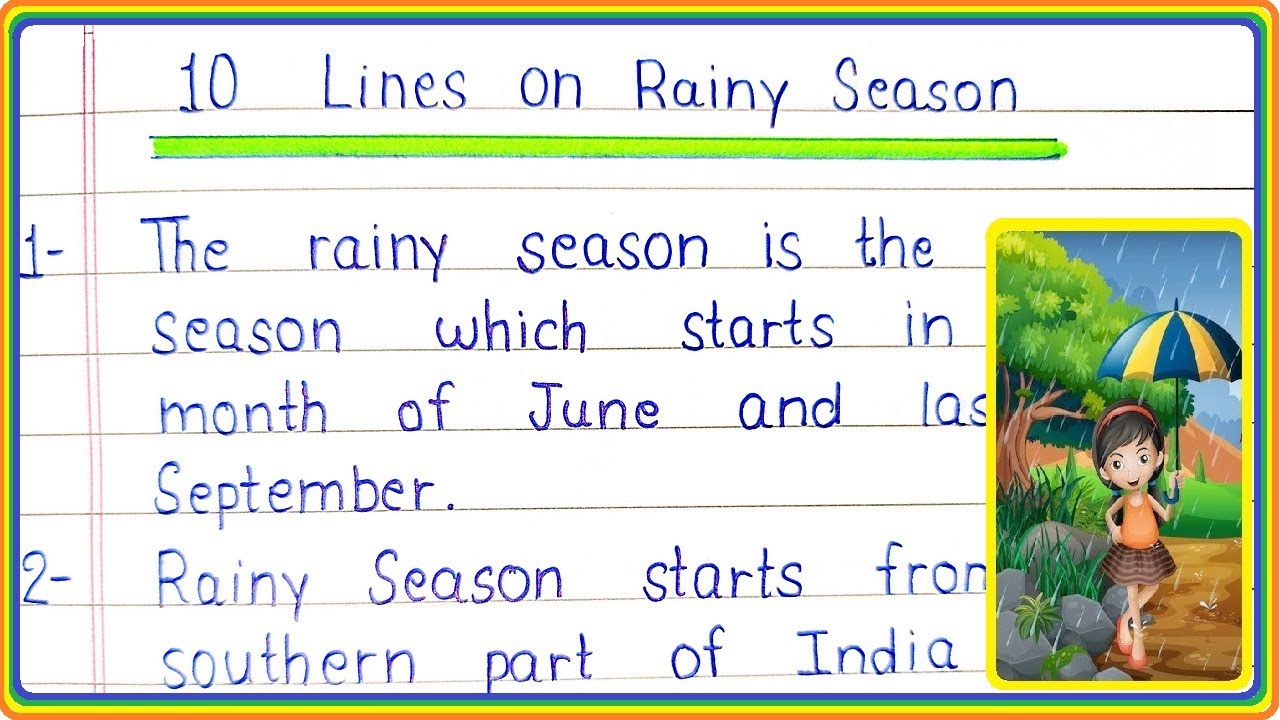 10 Lines on Rainy Season
1- The rainy season is the
season which starts in
month of June and las
September.
2- Rainy Season starts fron
southern part of India